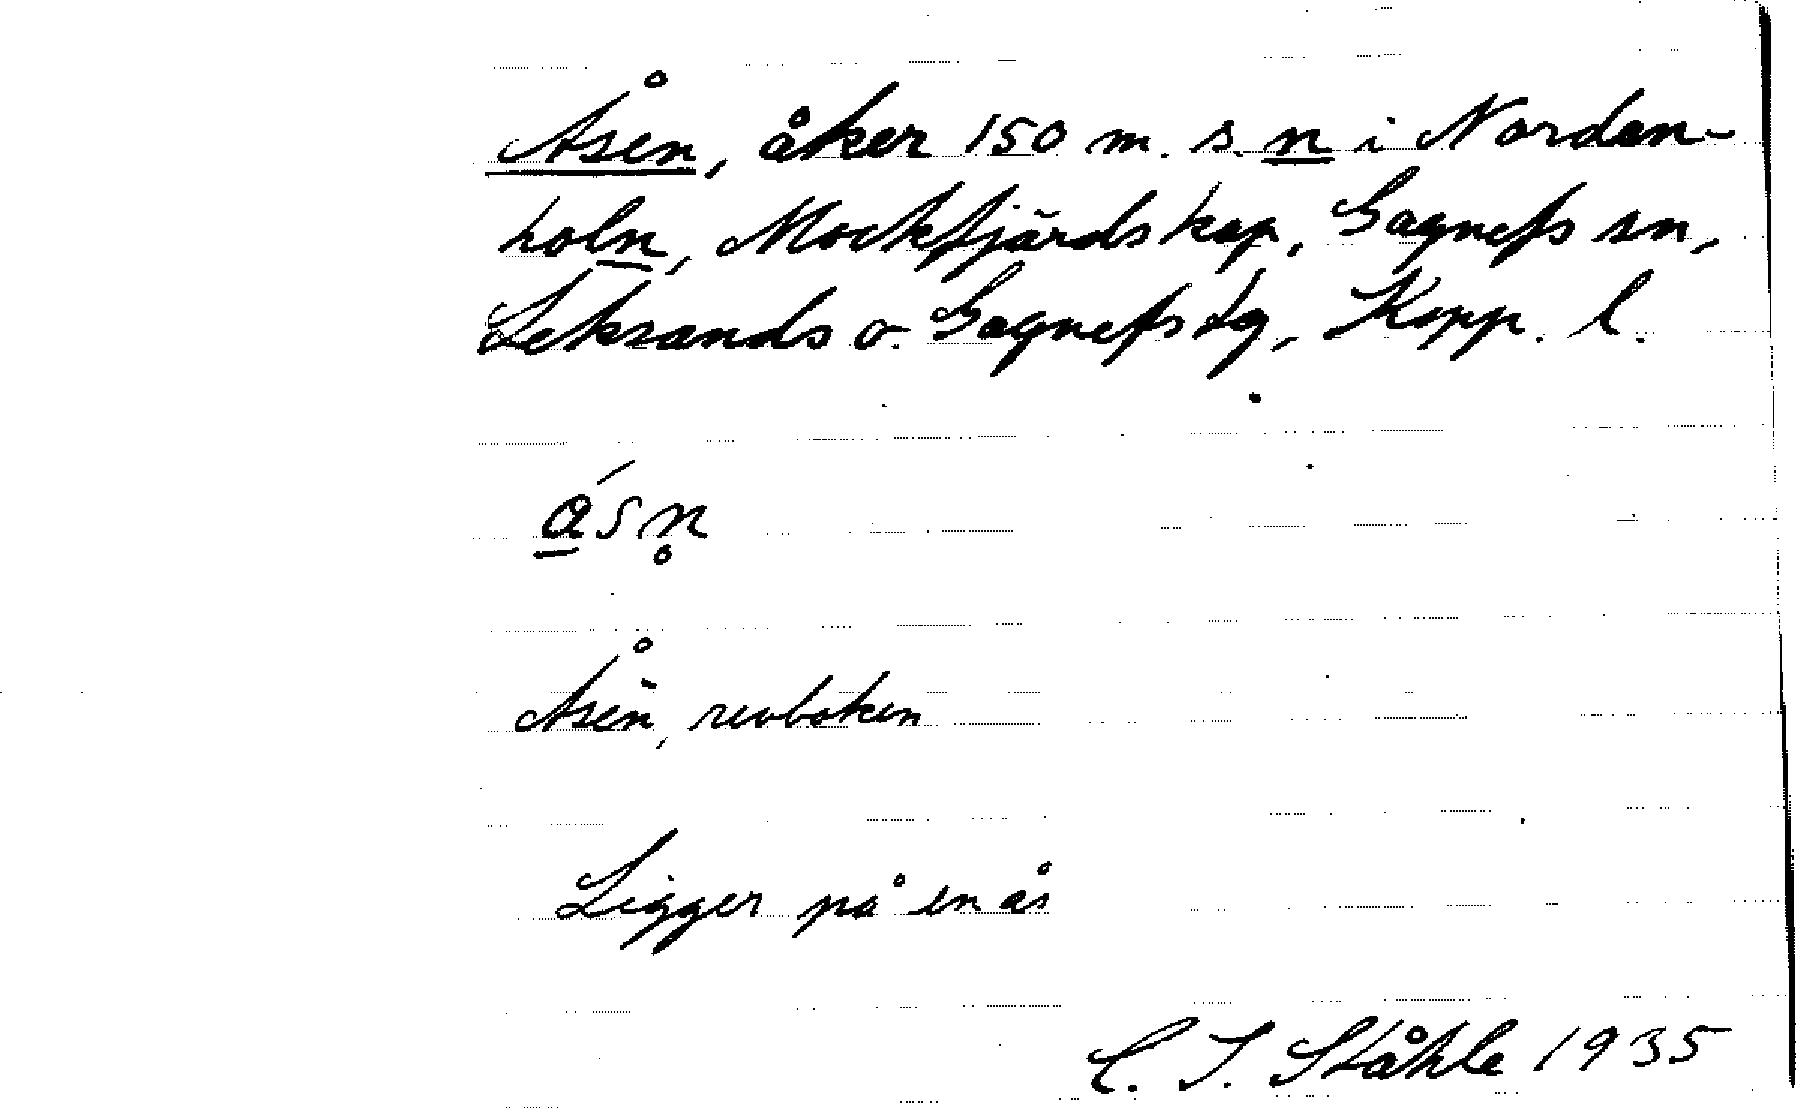 Åsen, åker 150 m. s. n i Norden-
holn, Mockfjärds kap, Gagnefs sn,
Leksands o. Gagnefs tg, Kopp. l.
ásn̥
Åsen, revboken
Ligger på en ås
C. I. Ståhle 1935